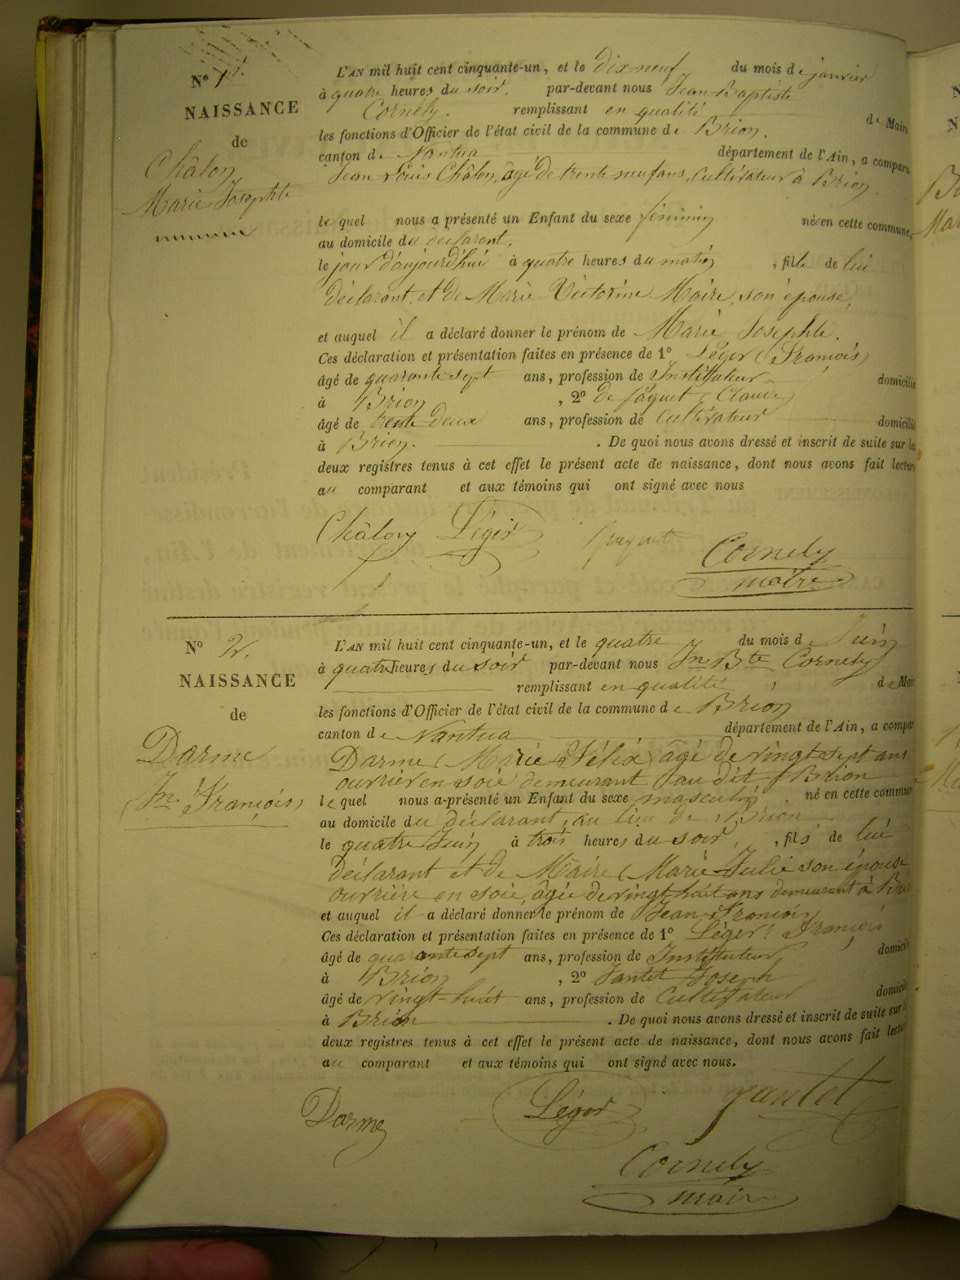 N° 1
NAISSANCE
de
Châlon
Marie Josephte
L'AN mil huit cent cinquante-un, et le dix neuf du mois de janvier
à quatre heures du soir. par-devant nous Jean Baptiste
Cornely. remplissant en qualité de Maire
les fonctions d'Officier de l'état civil de la commune de Brion.
canton de Nantua département de l'Ain, a comparu
Jean Louis Châlon, âgé de trente neuf ans, cultivateur à Brion,
le quel nous a présenté un Enfant du sexe féminin né en cette commune,
au domicile du déclarant,
le jour d'aujourd'hui à quatre heures du matin, fille de lui
déclarant, et de Marie Victorine Maire, son épouse,
et auquel il a déclaré donner le prénom de Marie Josephte.
Ces déclaration et présentation faites en présence de 1° Léger (François)
âgé de quarante sept ans, profession de Instituteur domicilié
à Brion, 2° de Claude
âgé de trente deux ans, profession de cultivateur domicilié
à Brion. . De quoi nous avons dressé et inscrit de suite sur les
deux registres tenus à cet effet le présent acte de naissance, dont nous avons fait lecture
au comparant et aux témoins qui ont signé avec nous
Châlon Léger
Cornely
maire
N° 2.
NAISSANCE
de
Darme
Jn François
L'AN mil huit cent cinquante-un, et le quatre du mois de Juin
à quatre heures du soir par-devant nous Jn Bte Cornely
remplissant en qualité de Maire
les fonctions d'Officier de l'état civil de la commune de Brion
canton de Nantua département de l'Ain, a compar
Darme (Marie Félix) agé de vingt sept ans
ouvrier en soie demeurant au dit Brion
le quel nous a présenté un Enfant du sexe masculin né en cette commun
au domicile du déclarant, au lieu de Brion
le quatre Juin à trois heures du soir, fils de lui
déclarant et de Maire (Marie Julie son épouse
ouvrière en soie, âgée de vingt huit ans demeurant à Brion
et auquel il a déclaré donner le prénom de Jean François
Ces déclaration et présentation faites en présence de 1° Léger, François
âgé de quarante sept ans, profession de Instituteur domicil
à Brion, 2° Joseph
âgé de vingt-huit ans, profession de Cultivateur domicil
à Brion . De quoi nous avons dressé et inscrit de suite sur
deux registres tenus à cet effet le présent acte de naissance, dont nous avons fait lectu
au comparant et aux témoins qui ont signé avec nous.
Darme Léger
Cornely
maire